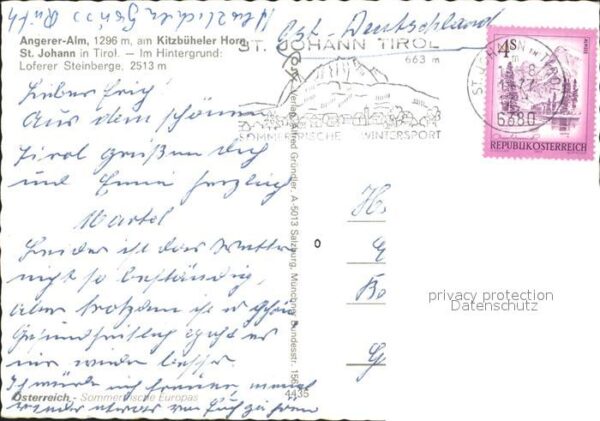 Herzlicher Gruss Ruth
Ost-Deutschland
Angerer-Alm, 1296 m, am Kitzbüheler Horn,
St. Johann in Tirol. — Im Hintergrund:
Loferer Steinberge, 2513 m
ST. JOHANN TIROL
663 m
SOMMERFRISCHE WINTERSPORT
ST. JOHANN IN TIROL
6380
4S
REPUBLIK ÖSTERREICH
Lieber Erich!
Aus dem schönen
Tirol grüßen dich
und Emmi herzlich
Martel
Leider ist das Wetter
nicht so beständig,
aber trotzdem ist es schön
Gesundheitlich geht es
mir wieder besser.
Ich würde mich freuen einmal
wieder etwas von Euch zu hören
Österreich - Sommerfrische Europas
4435
Gründler, A-5013 Salzburg, Münchner Bundesstr.
privacy protection
Datenschutz